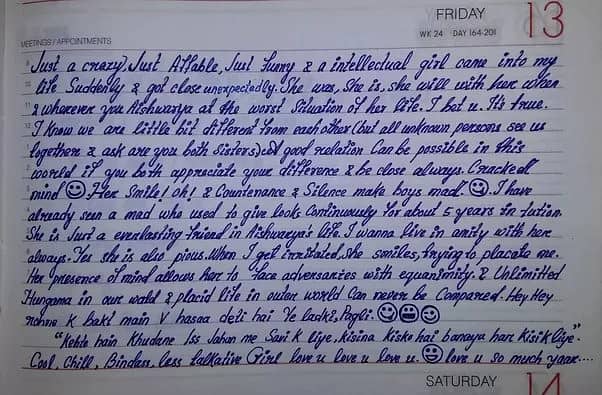 FRIDAY 13
WK 24 DAY 164-201
MEETINGS / APPOINTMENTS
Just a crazy, Just Affable, Just funny & a intellectual girl came into my
life Suddenly & got close unexpectedly. She was, She is, she will with her when
& wherever you Aishwarya at the worst Situation of her life. I bet u. It's true.
I Know we are little bit different from each other (but all unknown persons see us
together & ask are you both Sisters) A good relation Can be possible in this
world if you both appreciate your difference & be close always. Cracked
mind 😊 Her Smile! Oh! & Countenance & Silence make boys mad 😊. I have
already seen a mad who used to give looks Continuously for about 5 years in tution.
She is Just a everlasting friend in Aishwarya's life. I wanna live in amity with her
always. Yes she is also pious. When I get irritated, she smiles, trying to placate me.
Her presence of mind allows her to face adversaries with equanimity. & Unlimitted
Hungama in our wald & placid life in outer world Can never be Compared. Hey Hey
K baki main V hasaa deti hai Ye ladki, Pagli. 😊😀😊
"Kehte hain Khudane Iss Jahan me Savi K liye, kisina kisko hai banaya har kisi k liye".
Cool, Chill, Bindass, less talkative Girl love u love u love u. 😊 love u so much yaar....
SATURDAY 14